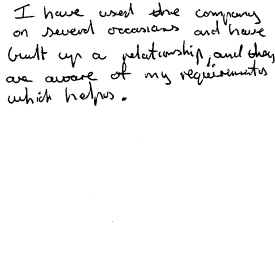 I have used the company
on several occasions and have
built up a relationship, and they
are aware of my requirements
which helps.